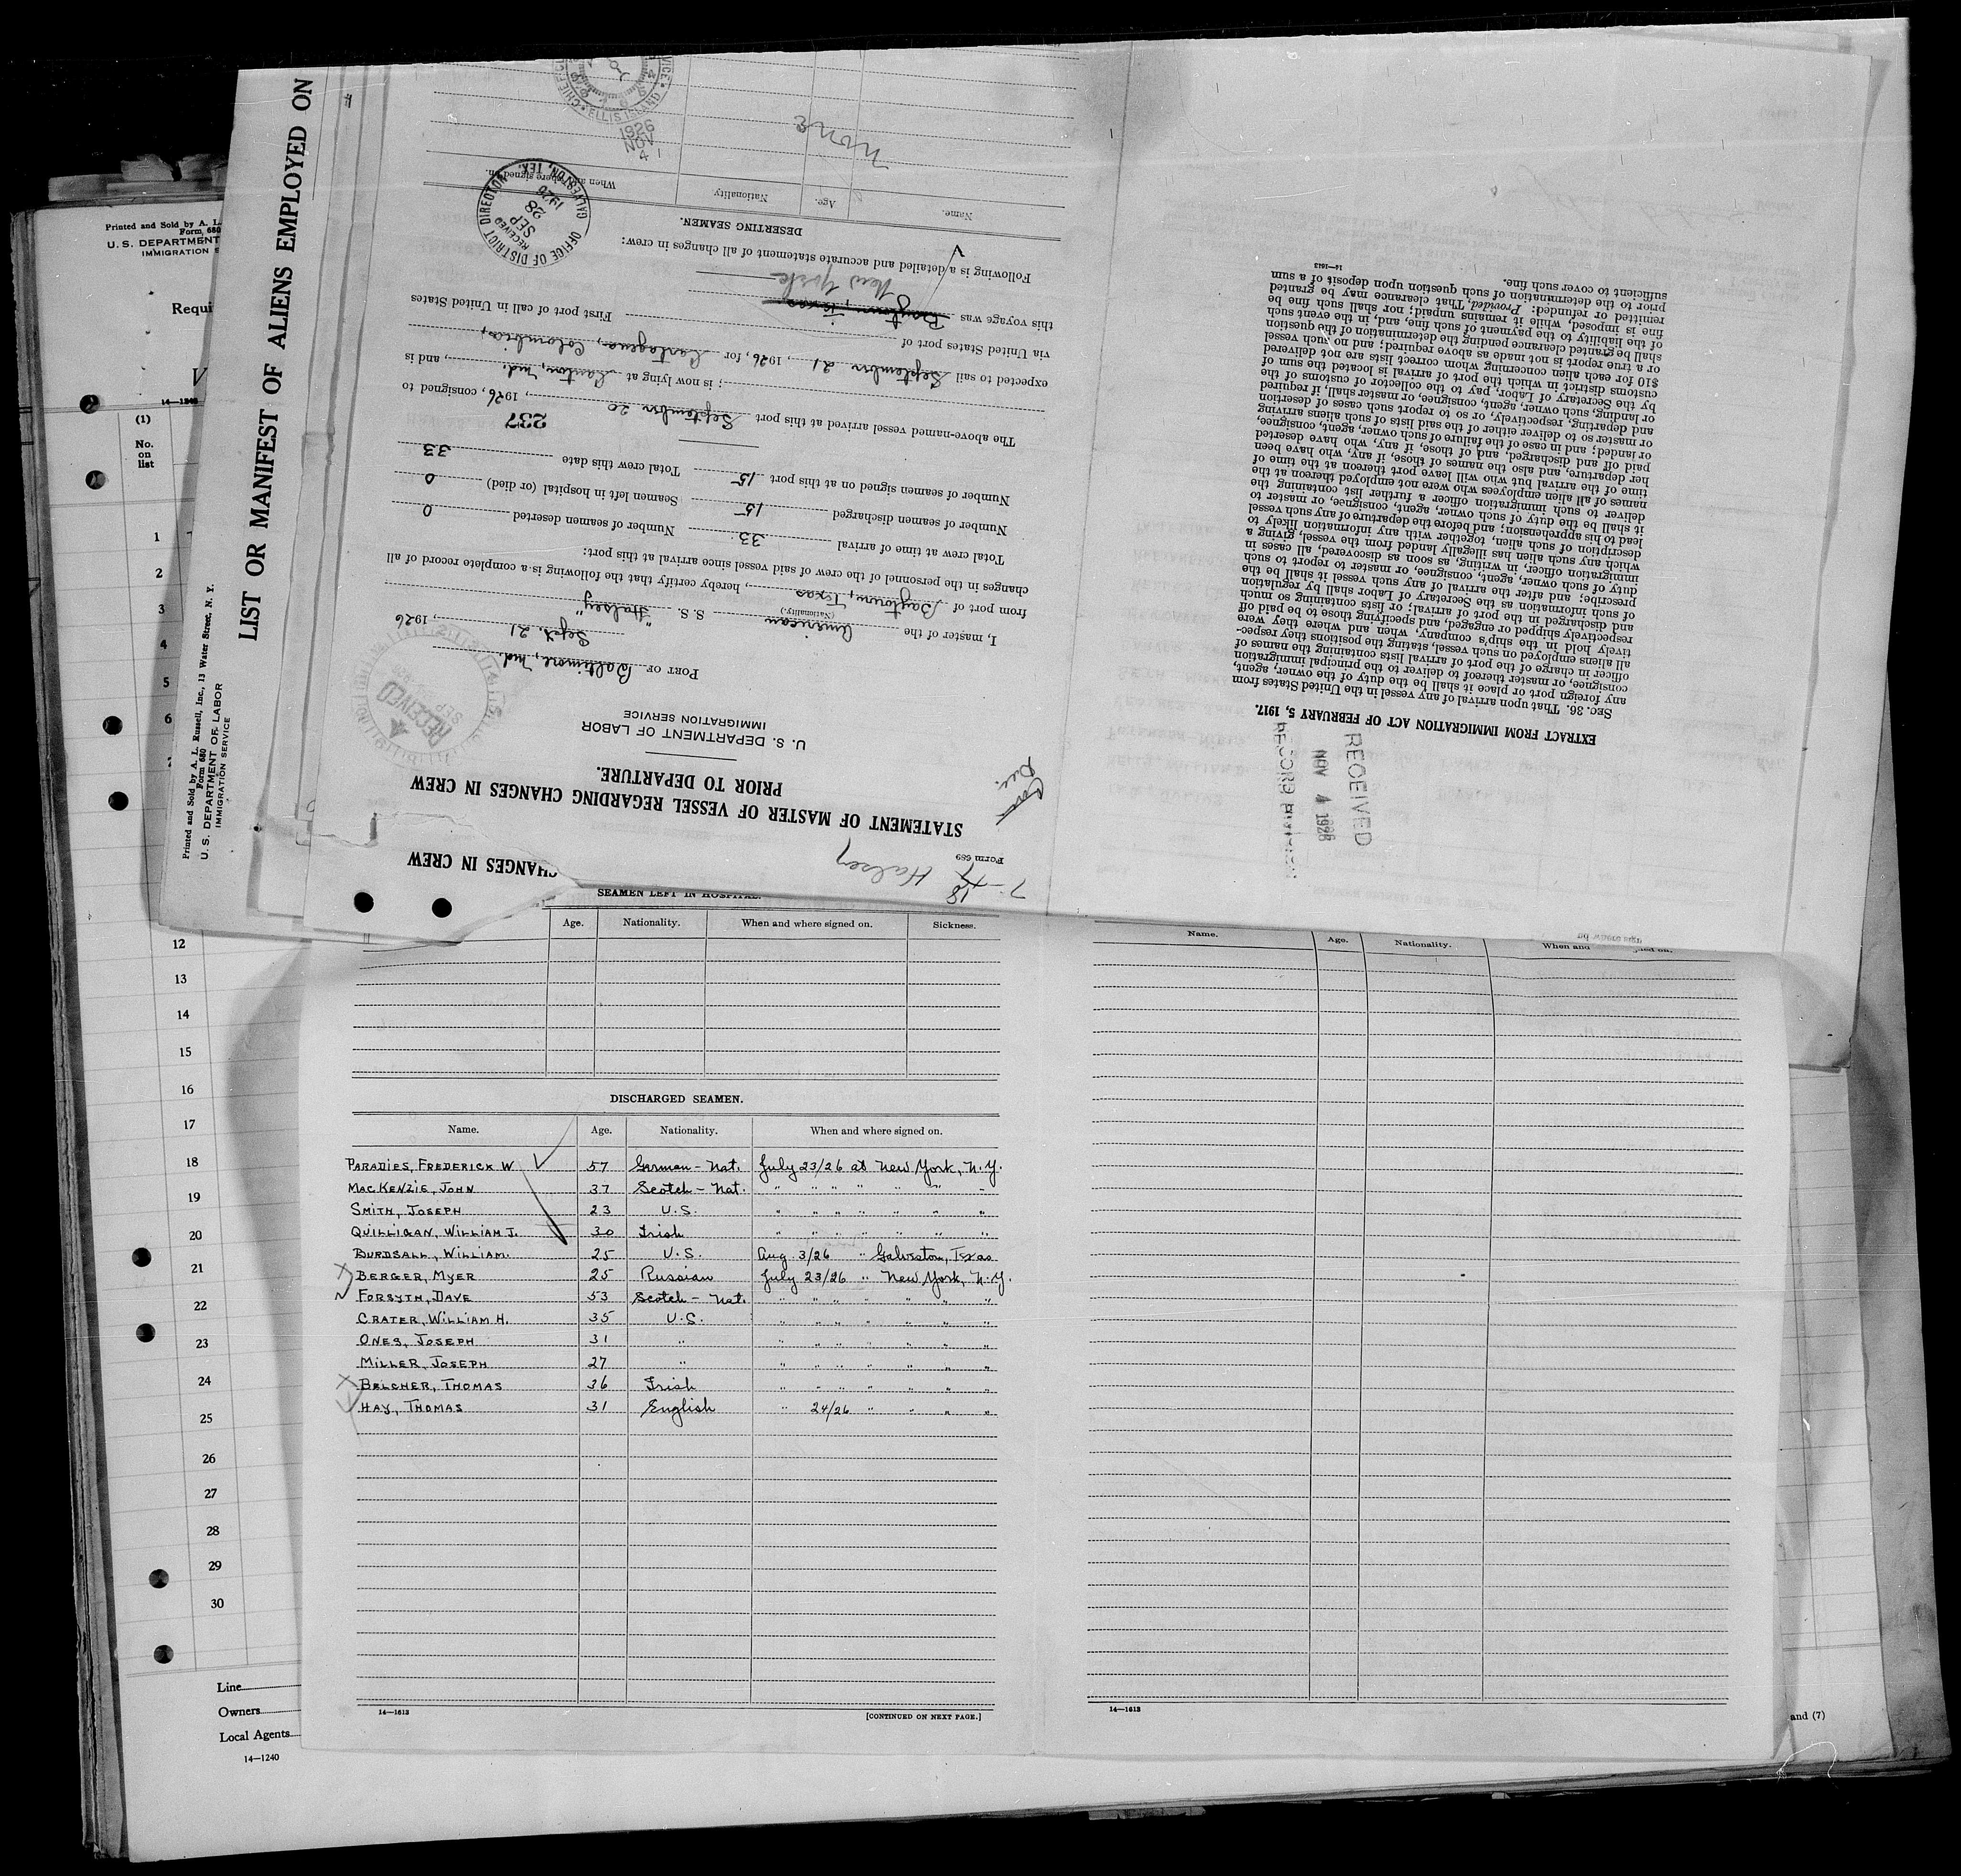 Printed and Sold by A. L.
Form 680
U. S. DEPARTMENT
IMMIGRATION S
Requi
(1)
No.
on
list
1
2
3
4
5
6
12
13
14
15
16
17
18
19
20
21
22
23
24
25
26
27
28
29
30
Line
Owners
Local Agents
14—1240
and (7)
Printed and Sold by A. L. Russell, Inc., 13 Water Street, N. Y.
Form 680
U. S. DEPARTMENT OF LABOR
IMMIGRATION SERVICE
LIST OR MANIFEST OF ALIENS EMPLOYED ON
CHANGES IN CREW
7-
18
Halsey
Form 689
STATEMENT OF MASTER OF VESSEL REGARDING CHANGES IN CREW
PRIOR TO DEPARTURE.
U. S. DEPARTMENT OF LABOR
IMMIGRATION SERVICE
RECEIVED
SEP
PORT OF Baltimore, Md.
Sept. 21, 1926
I, master of the American S. S. "Halsey"
(Nationality.)
from port of Baytown, Texas, hereby certify that the following is a complete record of all
changes in the personnel of the crew of said vessel since arrival at this port:
Total crew at time of arrival 33 Number of seamen deserted 0
Number of seamen discharged 15 Seamen left in hospital (or died) 0
Number of seamen signed on at this port 15 Total crew this date 33
237
The above-named vessel arrived at this port September 20, 1926, consigned to
; is now lying at Canton, Md., and is
expected to sail September 21, 1926, for Cartagena, Colombia,
via United States port of First port of call in United States
this voyage was Baytown, Texas
New York
Following is a detailed and accurate statement of all changes in crew:
DESERTING SEAMEN.
Name. Age. Nationality When and where signed on.
None
OFFICE OF DISTRICT DIRECTOR
RECEIVED
SEP
28
1926
GALVESTON, TEX.
1926
NOV
4
ELLIS ISLAND
RECEIVED
NOV 4 1926
EXTRACT FROM IMMIGRATION ACT OF FEBRUARY 5, 1917.
Sec. 36. That upon arrival of any vessel in the United States from
any foreign port or place it shall be the duty of the owner, agent,
consignee, or master thereof to deliver to the principal immigration
officer in charge of the port of arrival lists containing the names of
all aliens employed on such vessel, stating the positions they respec-
tively hold in the ship's company, when and where they were
respectively shipped or engaged, and specifying those to be paid off
and discharged in the port of arrival; or lists containing so much
of such information as the Secretary of Labor shall by regulation
prescribe; and after the arrival of any such vessel it shall be the
duty of such owner, agent, consignee, or master to report to such
immigration officer, in writing, as soon as discovered, all cases in
which any such alien has illegally landed from the vessel, giving a
description of such alien, together with any information likely to
lead to his apprehension; and before the departure of any such vessel
it shall be the duty of such owner, agent, consignee, or master to
deliver to such immigration officer a further list containing the
names of all alien employees who were not employed thereon at the
time of the arrival but who will leave port thereon at the time of
her departure, and also the names of those, if any, who have been
paid off and discharged, and of those, if any, who have deserted
or landed; and in case of the failure of such owner, agent, consignee,
or master so to deliver either of the said lists of such aliens arriving
and departing, respectively, or so to report such cases of desertion
or landing, such owner, agent, consignee, or master shall, if required
by the Secretary of Labor, pay to the collector of customs of the
customs district in which the port of arrival is located the sum of
$10 for each alien concerning whom correct lists are not delivered
or a true report is not made as above required; and no such vessel
shall be granted clearance pending the determination of the question
of the liability to the payment of such fine, and, in the event such
fine is imposed, while it remains unpaid; nor shall such fine be
remitted or refunded: Provided, That clearance may be granted
prior to the determination of such question upon deposit of a sum
sufficient to cover such fine.
14—1613
SEAMEN LEFT IN HOSPITAL.
Age. Nationality. When and where signed on. Sickness.
DISCHARGED SEAMEN.
Name. Age. Nationality. When and where signed on.
PARADIES, FREDERICK W 57 German - Nat. July 23/26 at New York, N.Y.
MACKENZIE, JOHN 37 Scotch - Nat. " " " " " " "
SMITH, JOSEPH 23 U.S. " " " " " " "
QUILLIGAN, WILLIAM J. 30 Irish " " " " " " "
BURDSALL, WILLIAM. 25 U.S. Aug. 3/26 " Galveston, Texas
BERGER, MYER 25 Russian July 23/26 " New York, N.Y.
FORSYTH, DAVE 53 Scotch - Nat. " " " " " " "
CRATER, WILLIAM H. 35 U.S. " " " " " " "
ONES, JOSEPH 31 " " " " " " " "
MILLER, JOSEPH 27 " " " " " " " "
BELCHER, THOMAS 36 Irish " " " " " " "
HAY, THOMAS 31 English " 24/26 " " " "
14—1613
[CONTINUED ON NEXT PAGE.]
Name. Age. Nationality. When and
14—1613